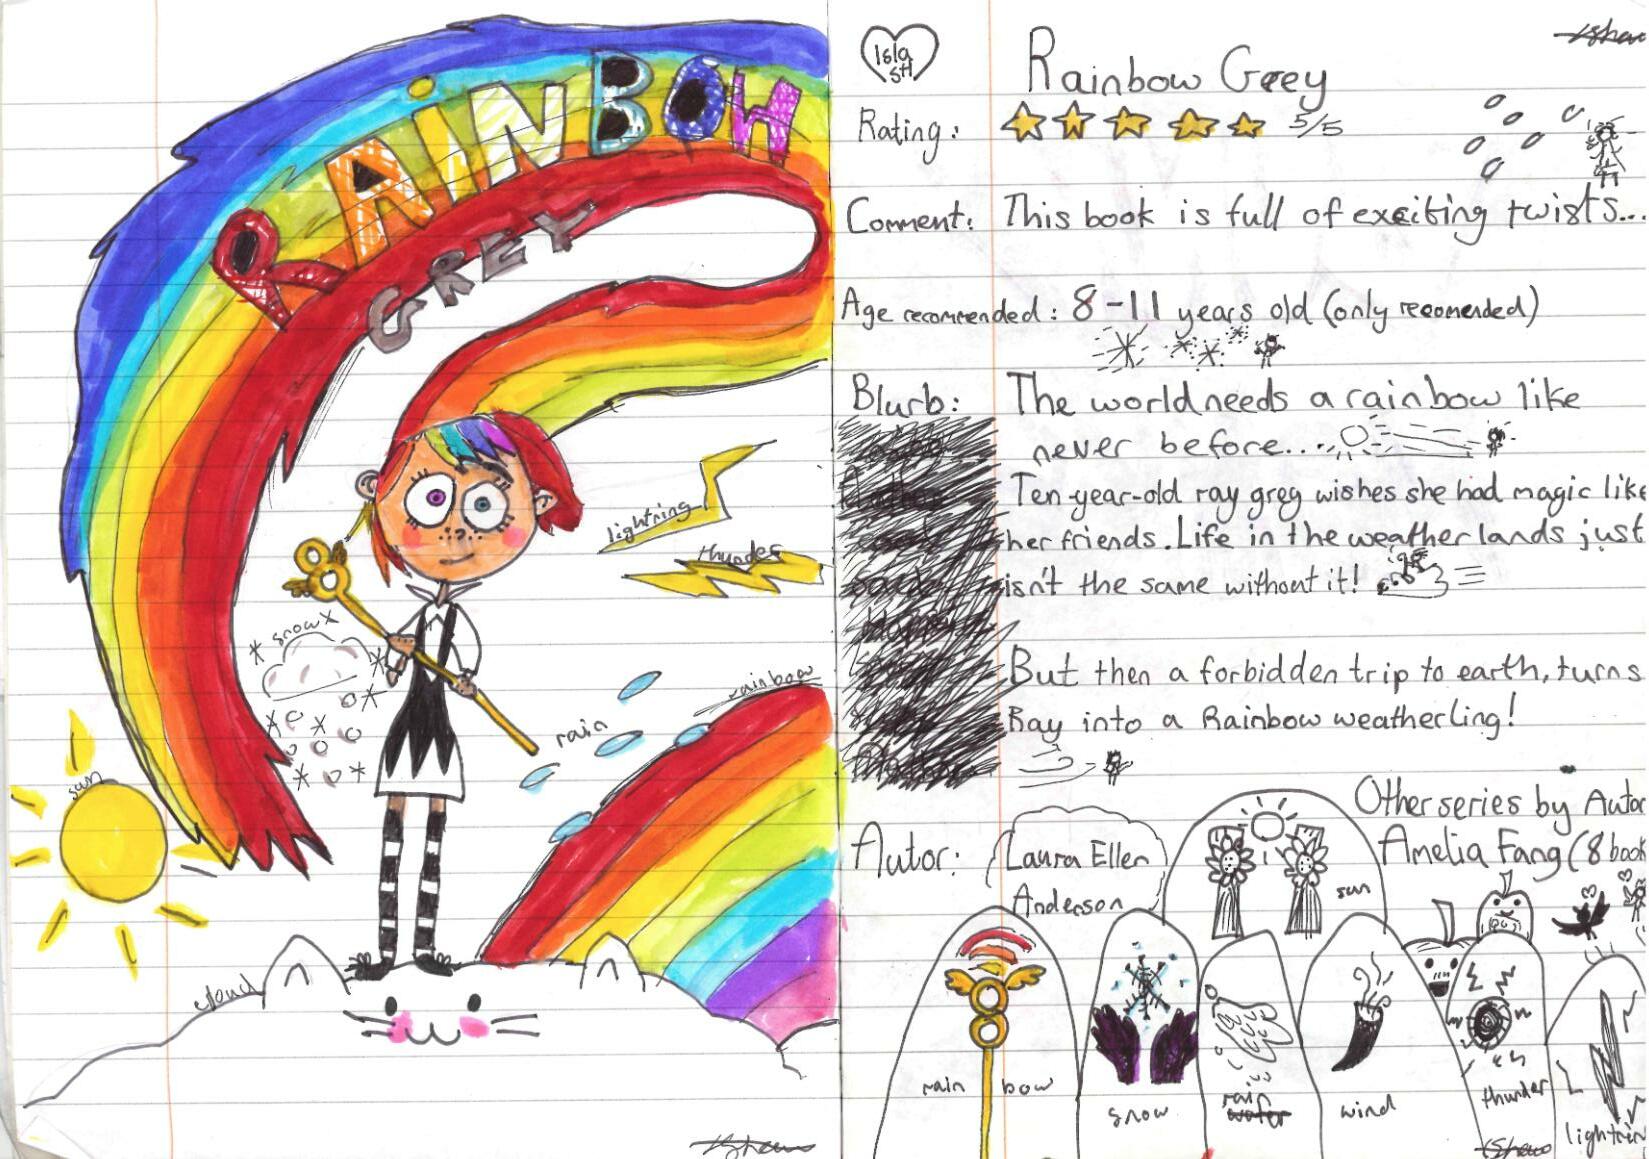 RAINBOW
GREY
lightning
thunder
snow
rain
rainbow
sun
cloud
Isla
SH
Rainbow Grey
Rating: 5/5
Comment: This book is full of exciting twists...
Age recommended: 8-11 years old (only recomended)
Blurb: The world needs a rainbow like
never before...
Ten-year-old ray greg wishes she had magic like
her friends. Life in the weather lands just
isn't the same without it!
But then a forbidden trip to earth, turns
Ray into a Rainbow weatherling!
Other series by Autor
Amelia Fang (8 book
Autor: Laura Ellen
Anderson
sun
rain bow
snow
rain
water
wind
thunder
lightnin